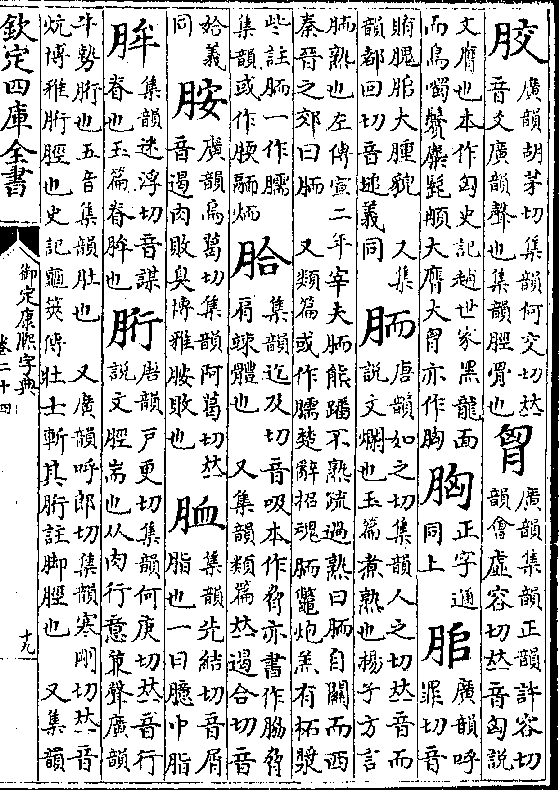 胶 廣韻胡茅切集韻何交切𠀤
音爻廣韻聲也集韻脛骨也
胷 廣韻集韻正韻許容切
韻會虛容切𠀤音匈說
文膺也本作匈史記趙世家黑龍面
而鳥噣鬢麋髭䫇大膺大胷亦作胸
胸 正字通
同上
䏨 廣韻呼
罪切音
賄腲䏨大腫貌 又集
韻都回切音堆義同
胹 唐韻如之切集韻人之切𠀤音而
說文爛也玉篇煮熟也揚子方言
胹熟也左傳宣二年宰夫胹熊蹯不熟疏過熟曰胹自關而西
秦晉之郊曰胹 又類篇或作臑楚辭招魂胹鼈炮羔有柘漿
些註胹一作臑
集韻或作腝䎡
䏩 集韻迄及切音吸本作脅亦書作脇脅
肩竦體也 又集韻類篇𠀤遏合切音
姶義
同
胺 廣韻烏葛切集韻阿葛切𠀤
音遏肉敗臭博雅胺敗也
䘑 集韻先結切音屑
脂也一曰臆中脂
䏬 集韻迷浮切音謀
脊也玉篇脊䏬也
胻 唐韻戶更切集韻何庚切𠀤音行
說文脛耑也从肉行意兼聲廣韻
牛勢胻也五音集韻肚也 又廣韻呼郎切集韻寒剛切𠀤音
炕博雅胻脛也史記龜筴傳壯士斬其胻註脚脛也 又集韻
欽定四庫全書
御定康熙字典
卷二十四
十九